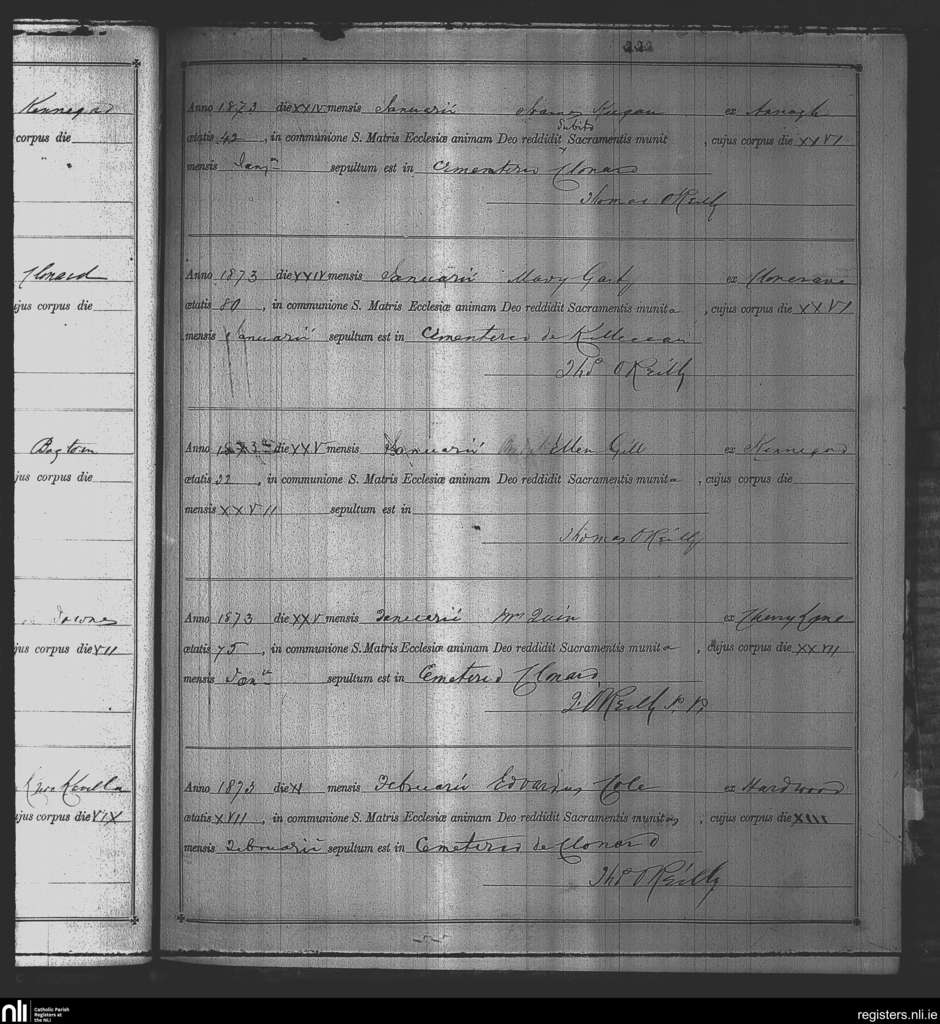 Kennegad
corpus die
Clonard
cujus corpus die
Bogtown
cujus corpus die
Downes
cujus corpus die VII
cujus corpus die VIX
222
Anno 1873 die XXIV mensis Januarii Keegan ex
Subito
ætatis 42, in communione S. Matris Ecclesiæ animam Deo reddidit Sacramentis munit , cujus corpus die XXVI
mensis sepultum est in Cementerio Clonard
Thomas O'Reilly
Anno 1873 die XXIV mensis Januarii Mary ex
ætatis 80, in communione S. Matris Ecclesiæ animam Deo reddidit Sacramentis munita, cujus corpus die XXVI
mensis Januarii sepultum est in Cementerio de
Thos O'Reilly
Anno 1873 die XXV mensis Januarii Ellen Gill ex Kennegad
ætatis 22, in communione S. Matris Ecclesiæ animam Deo reddidit Sacramentis munita, cujus corpus die
mensis XXVII sepultum est in
Thomas O'Reilly
Anno 1873 die XXV mensis Januarii Mrs Quin ex Cherry Lane
ætatis 75, in communione S. Matris Ecclesiæ animam Deo reddidit Sacramentis munita, cujus corpus die XXVII
mensis sepultum est in Cemeterio Clonard
O'Reilly P. P.
Anno 1873 die XI mensis Februarii Edvardus Cole ex Hardwood
ætatis XVII, in communione S. Matris Ecclesiæ animam Deo reddidit Sacramentis munitus, cujus corpus die XIII
mensis Februarii sepultum est in Cemeterio de Clonard
Thos O'Reilly
nli Catholic Parish
Registers at
the NLI
registers.nli.ie